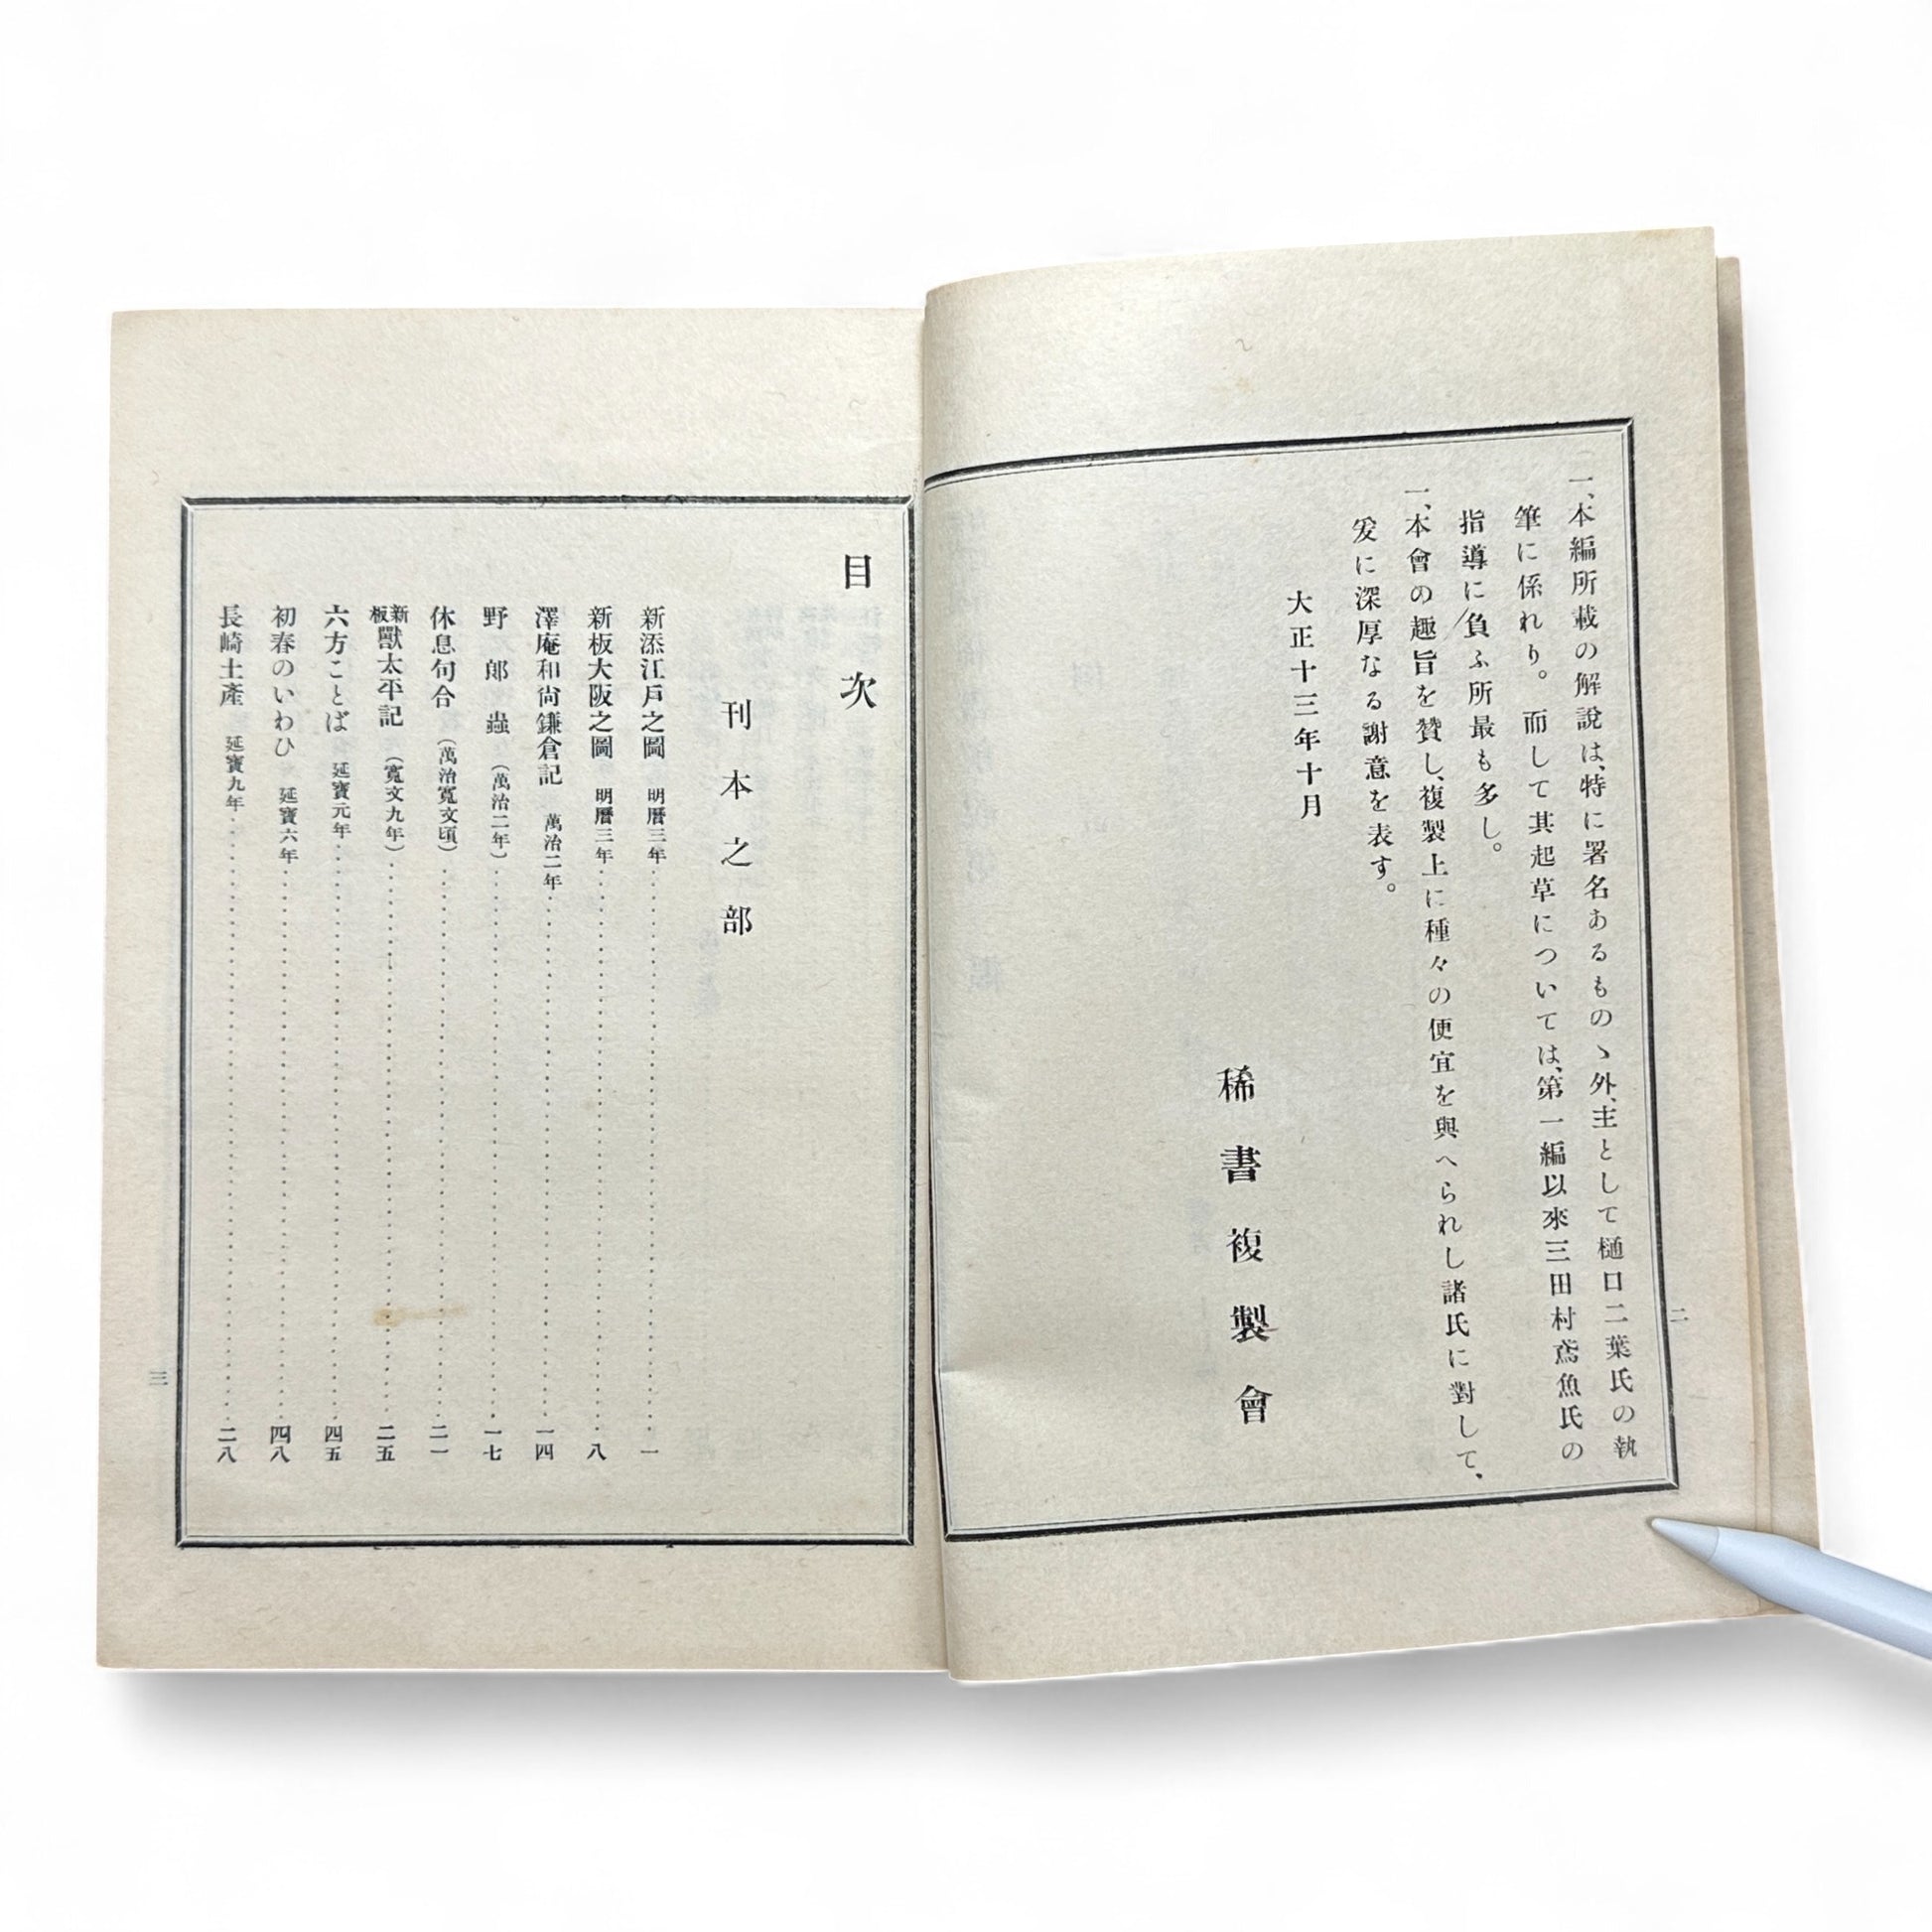 一、本編所載の解說は、特に署名あるものゝ外、主として樋口二葉氏の執
筆に係れり。而して其起草については、第一編以來三田村鳶魚氏の
指導に負ふ所最も多し。
一、本會の趣旨を贊し、複製上に種々の便宜を與へられし諸氏に對して、
爰に深厚なる謝意を表す。
大正十三年十月
稀書複製會
二
目次
刊本之部
新添江戶之圖 明曆三年 一
新板大阪之圖 明曆三年 八
澤庵和尙鎌倉記 萬治二年 一四
野郞蟲（萬治二年） 一七
休息句合（萬治寬文頃） 二一
新板獸太平記（寬文九年） 二五
六方ことば 延寶元年 四五
初春のいわひ 延寶六年 四八
長崎土產 延寶九年 二八
三